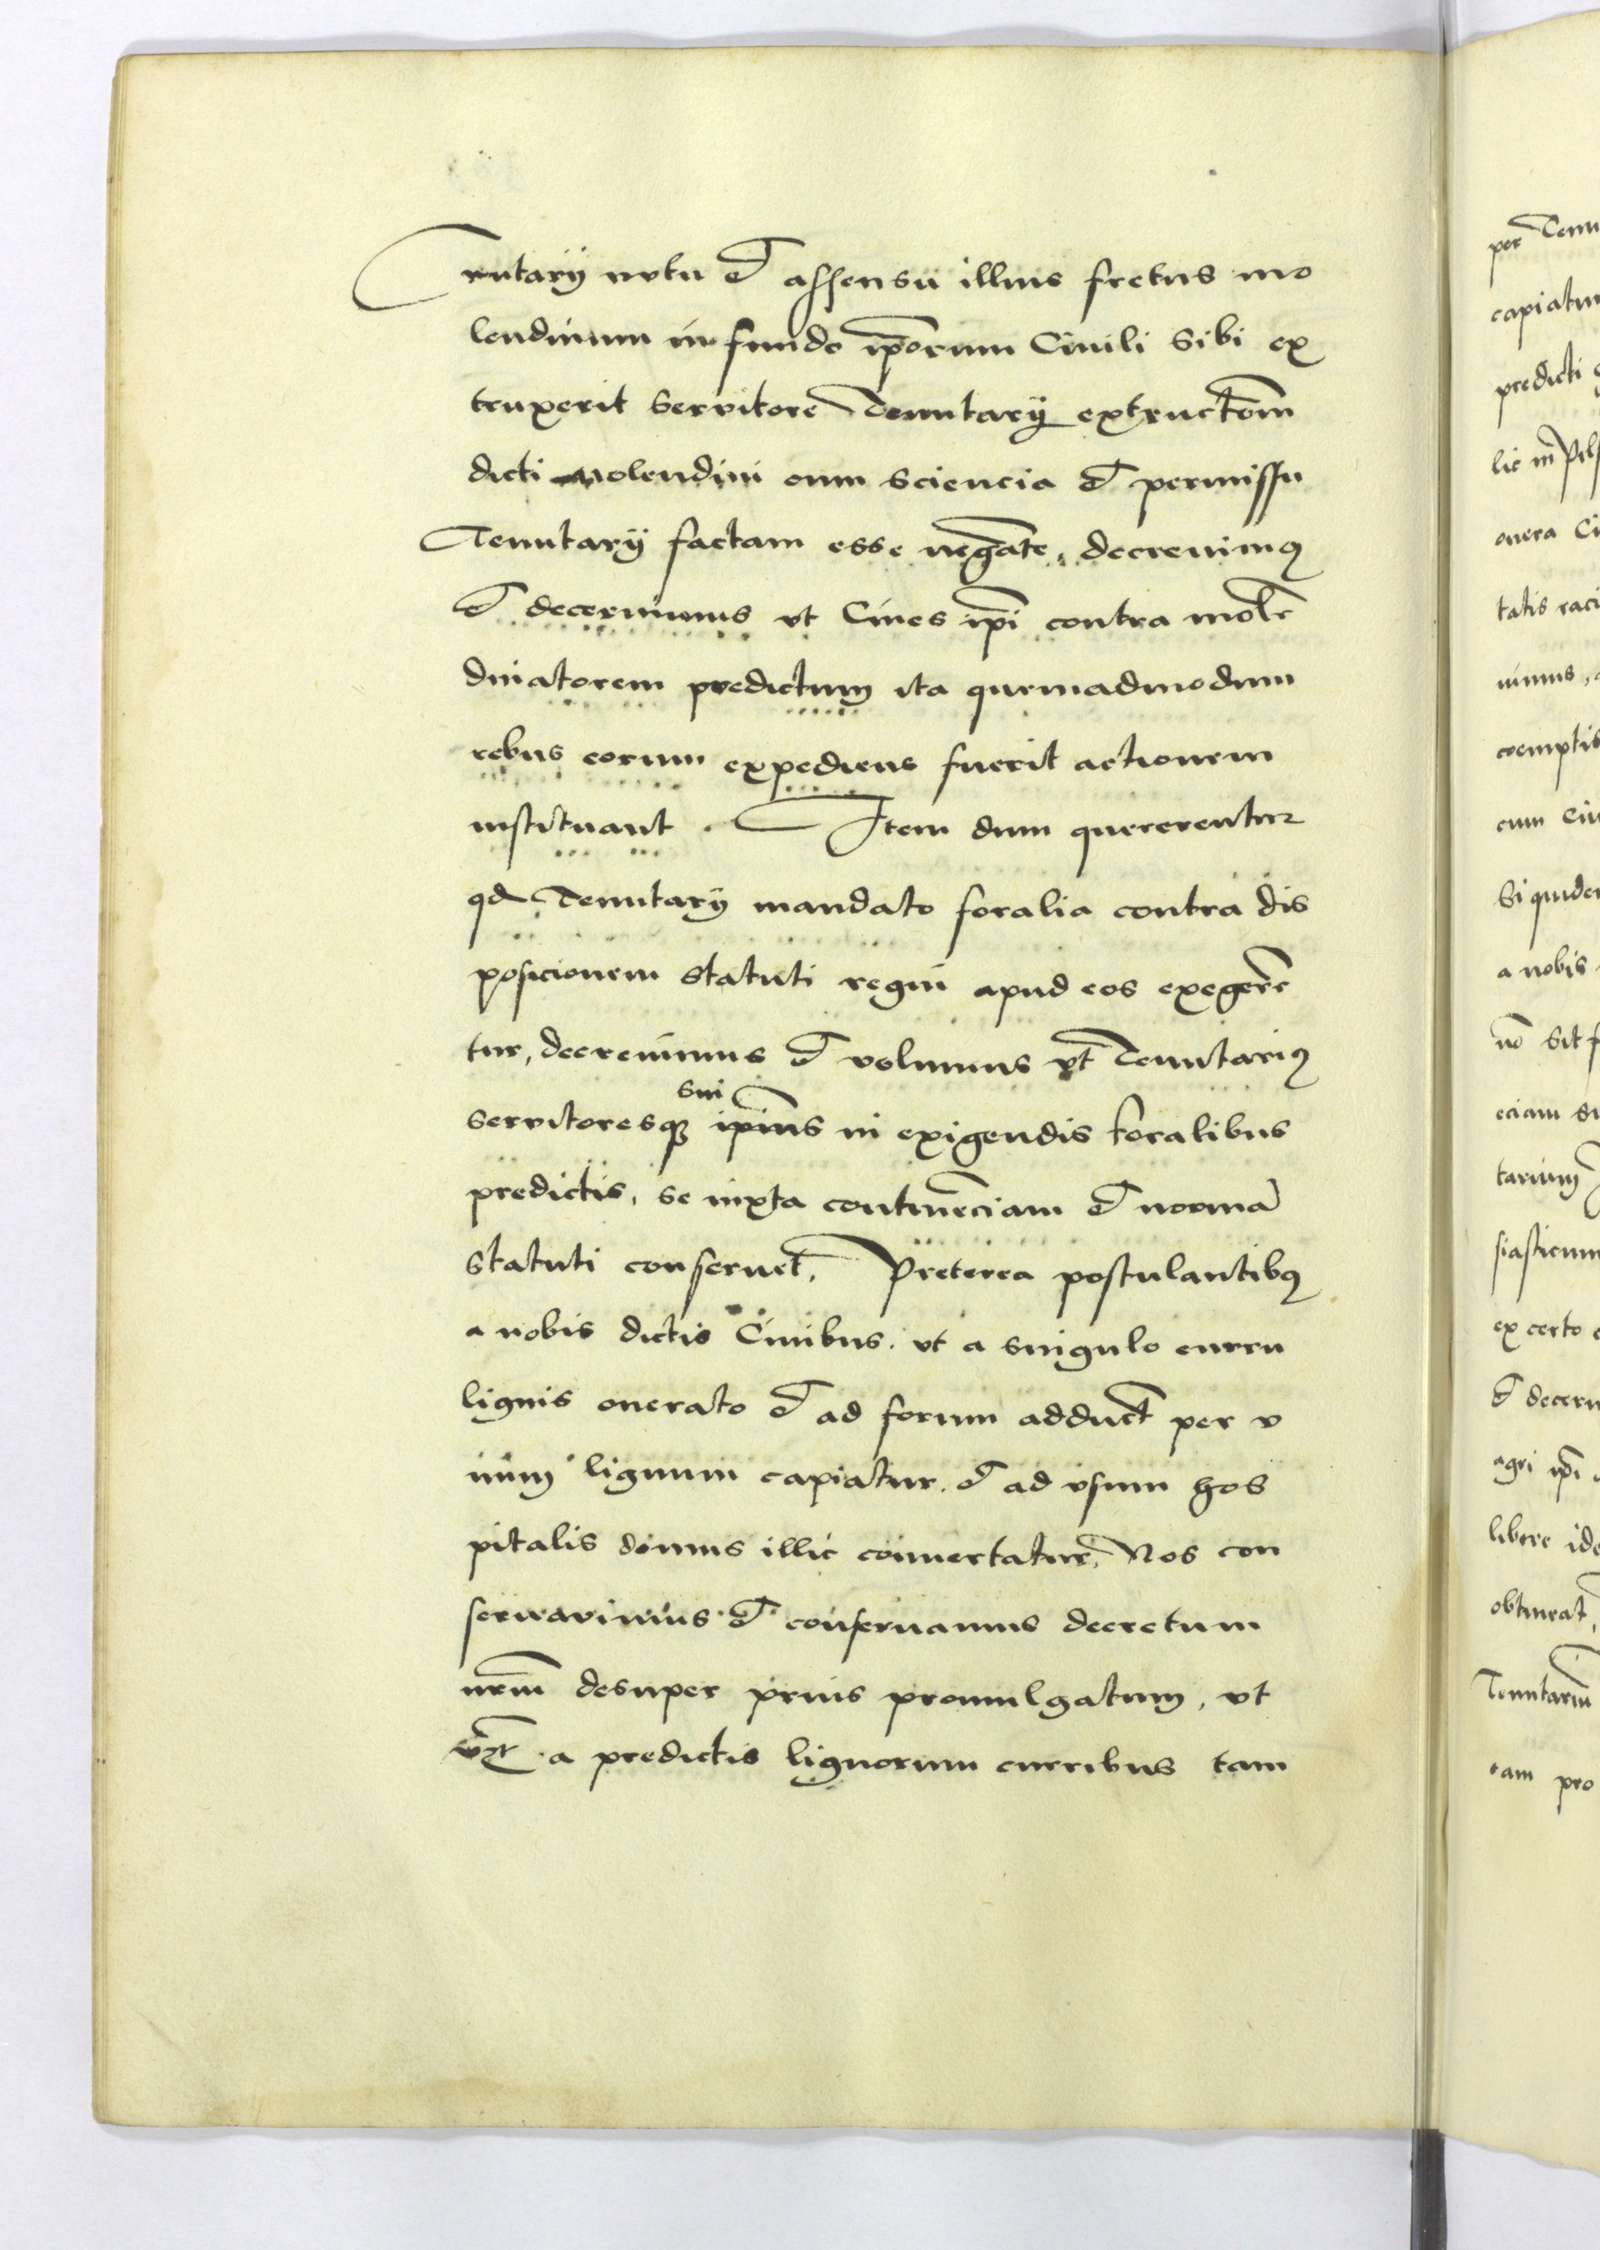 Tenutarÿ nutu et assensu illius fretus mo
lendinum in fundo ip̅orum Ciuili Sibi ex
truxerit Servitore Tenutarÿ extructiom̅
dicti molendini cum Sciencia et permissu
Tenutarÿ factam esse negan̅te, decreuimus
et decernimus vt Ciues ip̅i contra molen̅
dinatorem predictum ita quemadmodum
rebus eorum expediens fuerit actionem
instituant. Item dum quererentur
qd Tenutarÿ mandato foralia contra dis
posicionem Statuti regni apud eos exegeren̅
tur, decreuimus et volumus vt Tenutarius
sui
Servitoresque ip̅ius in exigendis foralibus
predictis, se iuxta continen̅ciam et norma̅
Statuti conseruet̅. Preterea postulantibus
a nobis dictis Ciuibus. vt a Singulo curru
lignis onerato et ad forum adduct̅ per v
num lignum capiatur. et ad vsum hos
pitalis domus illic conuertatur. Nos con
seruauimus et conseruamus decretum
nrm̅ desuper prius promulgatum, vt
vz̅ a predictis lignorum curribus tam
per Tenu
capiatur
predicti
lic
onera Ci
tatis raci
uimus,
coemptis
cum Ciu
Siquidem
a nobis
no̅ Sit f
eciam
tarium
siasticum
ex certo
et decern
agri ip̅i
libere ide
obtineat,
Tenutarium
eam pro